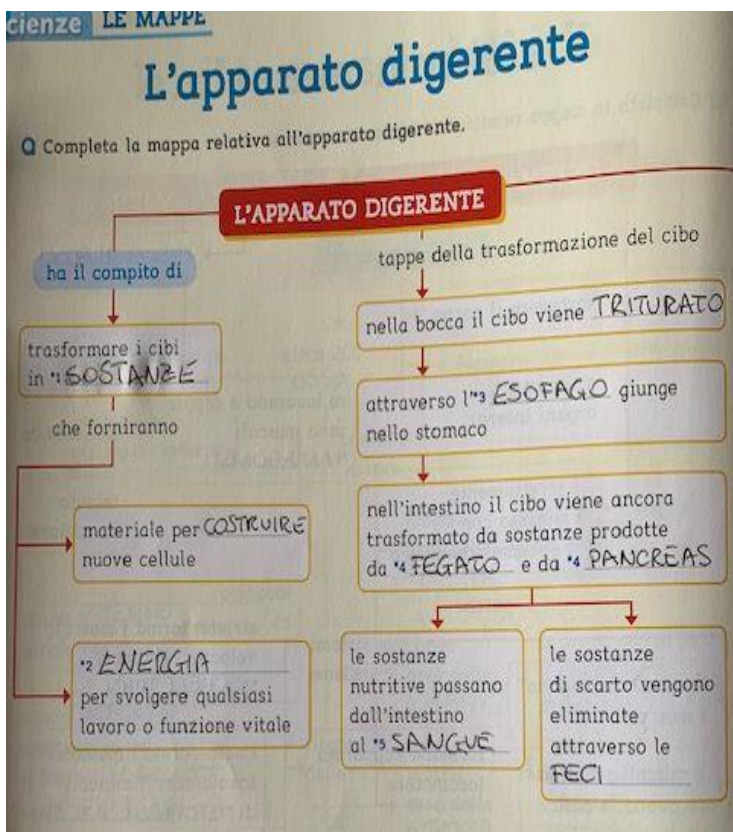 cienze LE MAPPE
L'apparato digerente
Completa la mappa relativa all'apparato digerente.
L'APPARATO DIGERENTE
ha il compito di
trasformare i cibi
in *1 SOSTANZE
che forniranno
materiale per COSTRUIRE
nuove cellule
*2 ENERGIA
per svolgere qualsiasi
lavoro o funzione vitale
tappe della trasformazione del cibo
nella bocca il cibo viene TRITURATO
attraverso l'*3 ESOFAGO giunge
nello stomaco
nell'intestino il cibo viene ancora
trasformato da sostanze prodotte
da *4 FEGATO e da *4 PANCREAS
le sostanze
nutritive passano
dall'intestino
al *5 SANGUE
le sostanze
di scarto vengono
eliminate
attraverso le
FECI